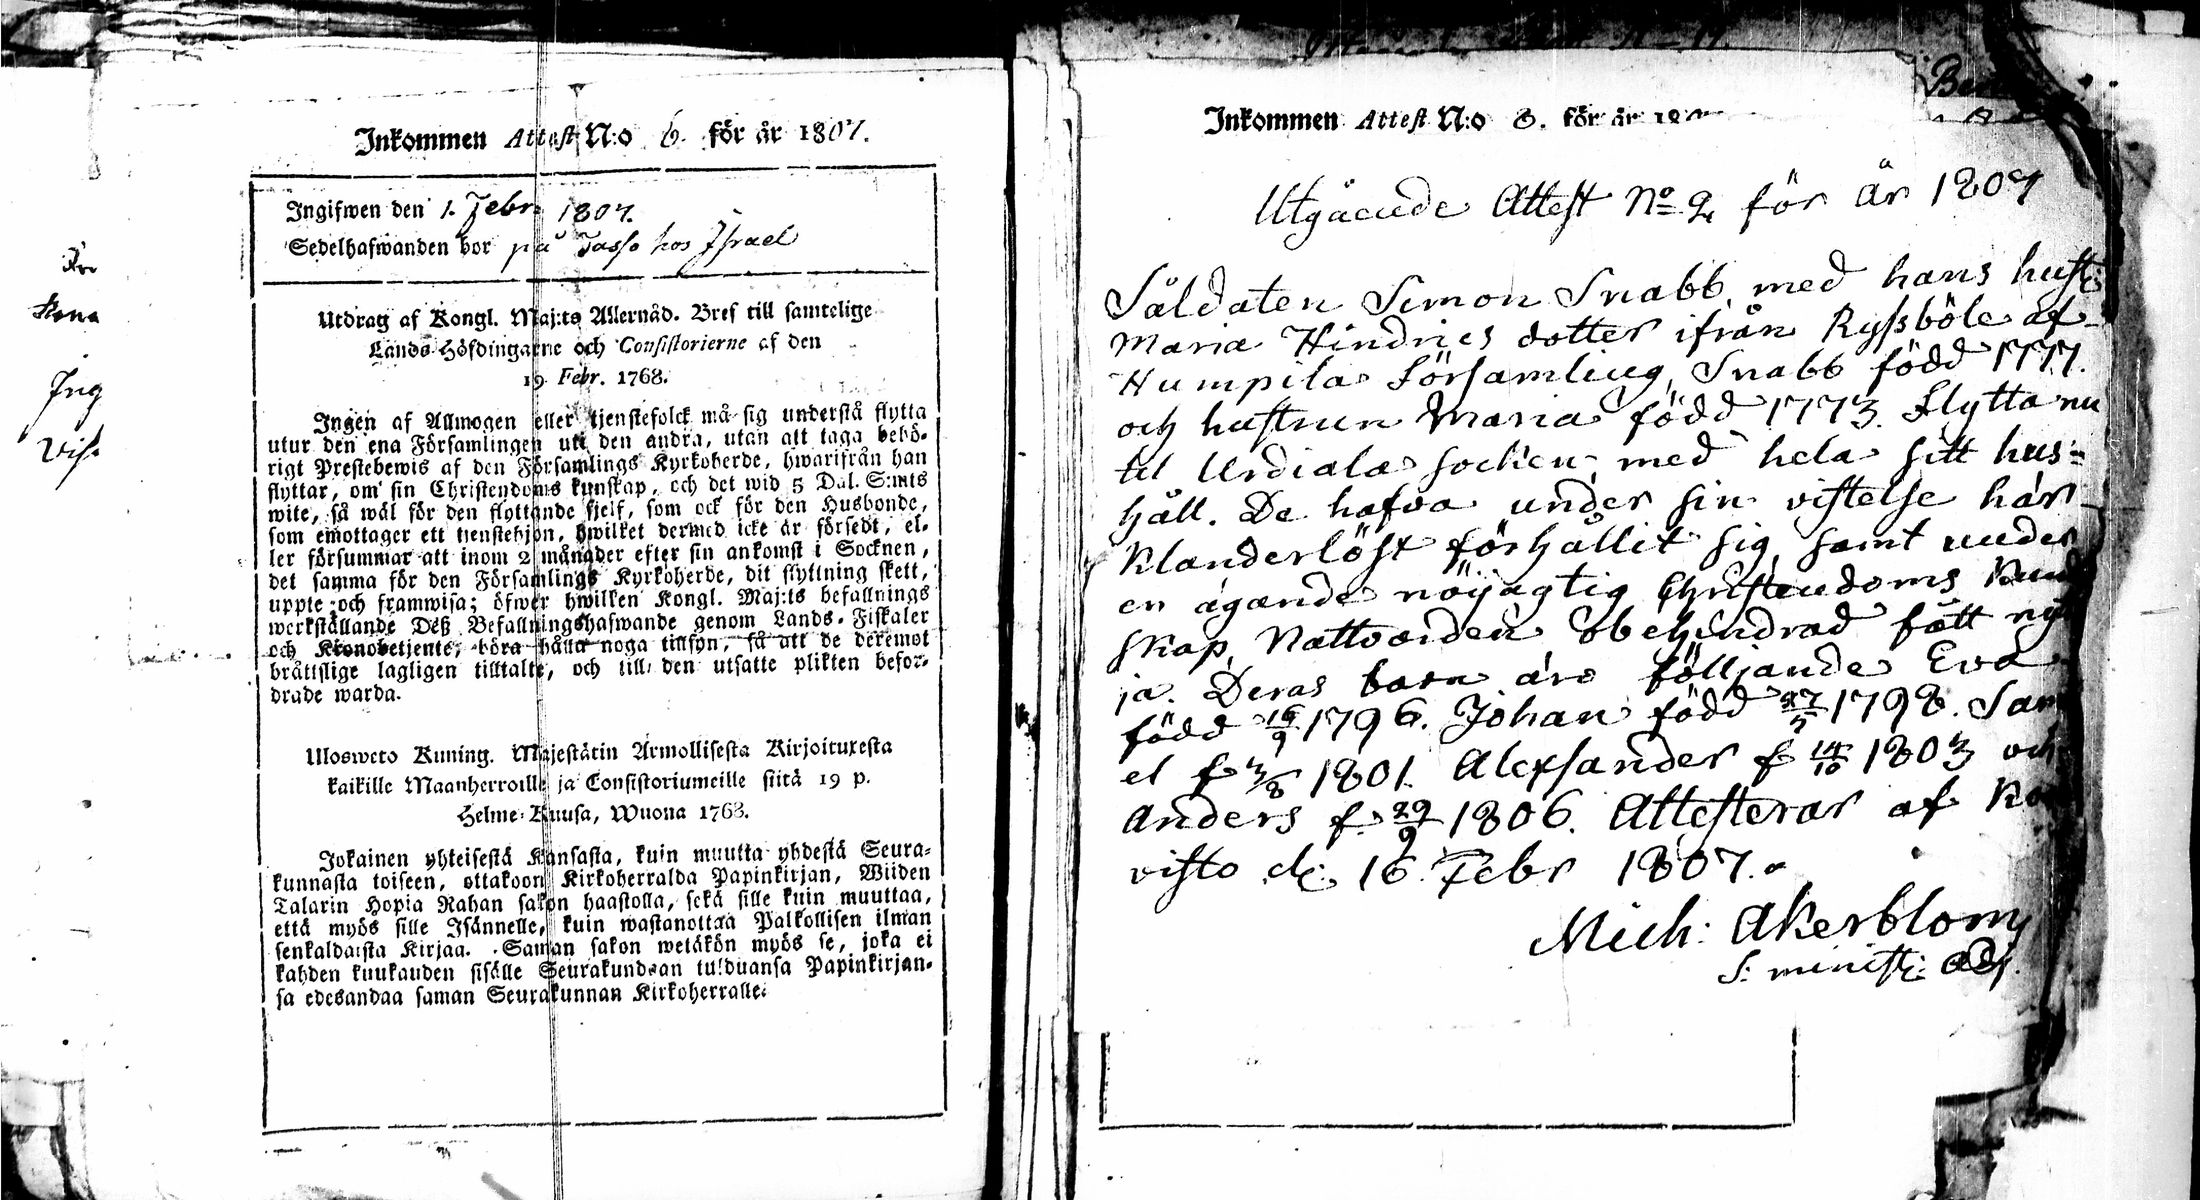 Kona
Ing
vis
Inkommen Attest N:o 6. för år 1807.
Ingifwen den 1. Febr: 1807.
Sedelhafwanden bor på Tasso hos Israel
Utdrag af Kongl. Maj:ts Allernåd. Bref till samtelige
Lands-Höfdingarne och Consistorierne af den
19 Febr. 1768.
Ingen af Allmogen eller tjenstefolck må sig understå flytta
utur den ena Församlingen uti den andra, utan att taga behö-
rigt Prestebewis af den Församlings Kyrkoherde, hwarifrån han
flyttar, om sin Christendoms kunskap, och det wid 5 Dal. S:mts
wite, så wäl för den flyttande sjelf, som ock för den Husbonde,
som emottager ett tienstehjon, hwilket dermed icke är försedt, el-
ler försummar att inom 2 månader efter sin ankomst i Socknen,
det samma för den Församlings Kyrkoherde, dit flyttning skett,
uppte och framwisa; öfwer hwilken Kongl. Maj:ts befallnings
werkställande Deß Befallningshafwande genom Lands-Fiskaler
och Kronobetjente, böra hålla noga tillsyn, så att de deremot
bråttslige lagligen tilltalte, och till den utsatte plikten befor-
drade warda.
Ulosweto Kuning. Majestätin Armollisesta Kirjoituxesta
kaikille Maanherroille ja Consistoriumeille siitä 19 p.
Helme-Kuusa, Wuona 1768.
Jokainen yhteisestä Kansasta, kuin muutta yhdestä Seura-
kunnasta toiseen, ottakoon Kirkoherralda Papinkirjan, Wiiden
Talarin Hopia Rahan sakon haastolla, sekä sille kuin muuttaa,
että myös sille Isännelle, kuin wastanottaa Palkollisen ilman
senkaldaista Kirjaa. Saman sakon wetäkön myös se, joka ei
kahden kuukauden sisälle Seurakundaan tulduansa Papinkirjan-
sa edesandaa saman Seurakunnan Kirkoherralle.
Inkommen Attest N:o 8. för år 180
Utgående Attest No 2 för år 1807
Såldaten Simon Snabb med hans hust:
Maria Hindrics dotter ifrån Ryssböle af
Humpila Församling, Snabb född 1777.
och hustrun Maria född 1773. Flytta nu
til Urdiala socken med hela sitt hus=
håll. De hafva under sin vistelse här
Klanderlöst förhållit sig, samt under
en ägande nöijagtig Christendoms Kund
skap, Nattvarden obehindrad fått nyt
ja. Deras barn äro följande Eva
född 16/9 1796. Johan född 27/5 1798. Sam
el f. 3/8 1801. Alexsander f 14/10 1803 och
Anders f. 29/9 1806. Attesteras af Koi
visto d: 16. Febr 1807.
Mich: Akerblom
s: minist: Adj.